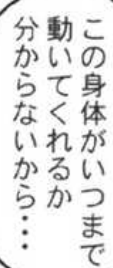 この身体がいつまで
動いてくれるか
分からないから…